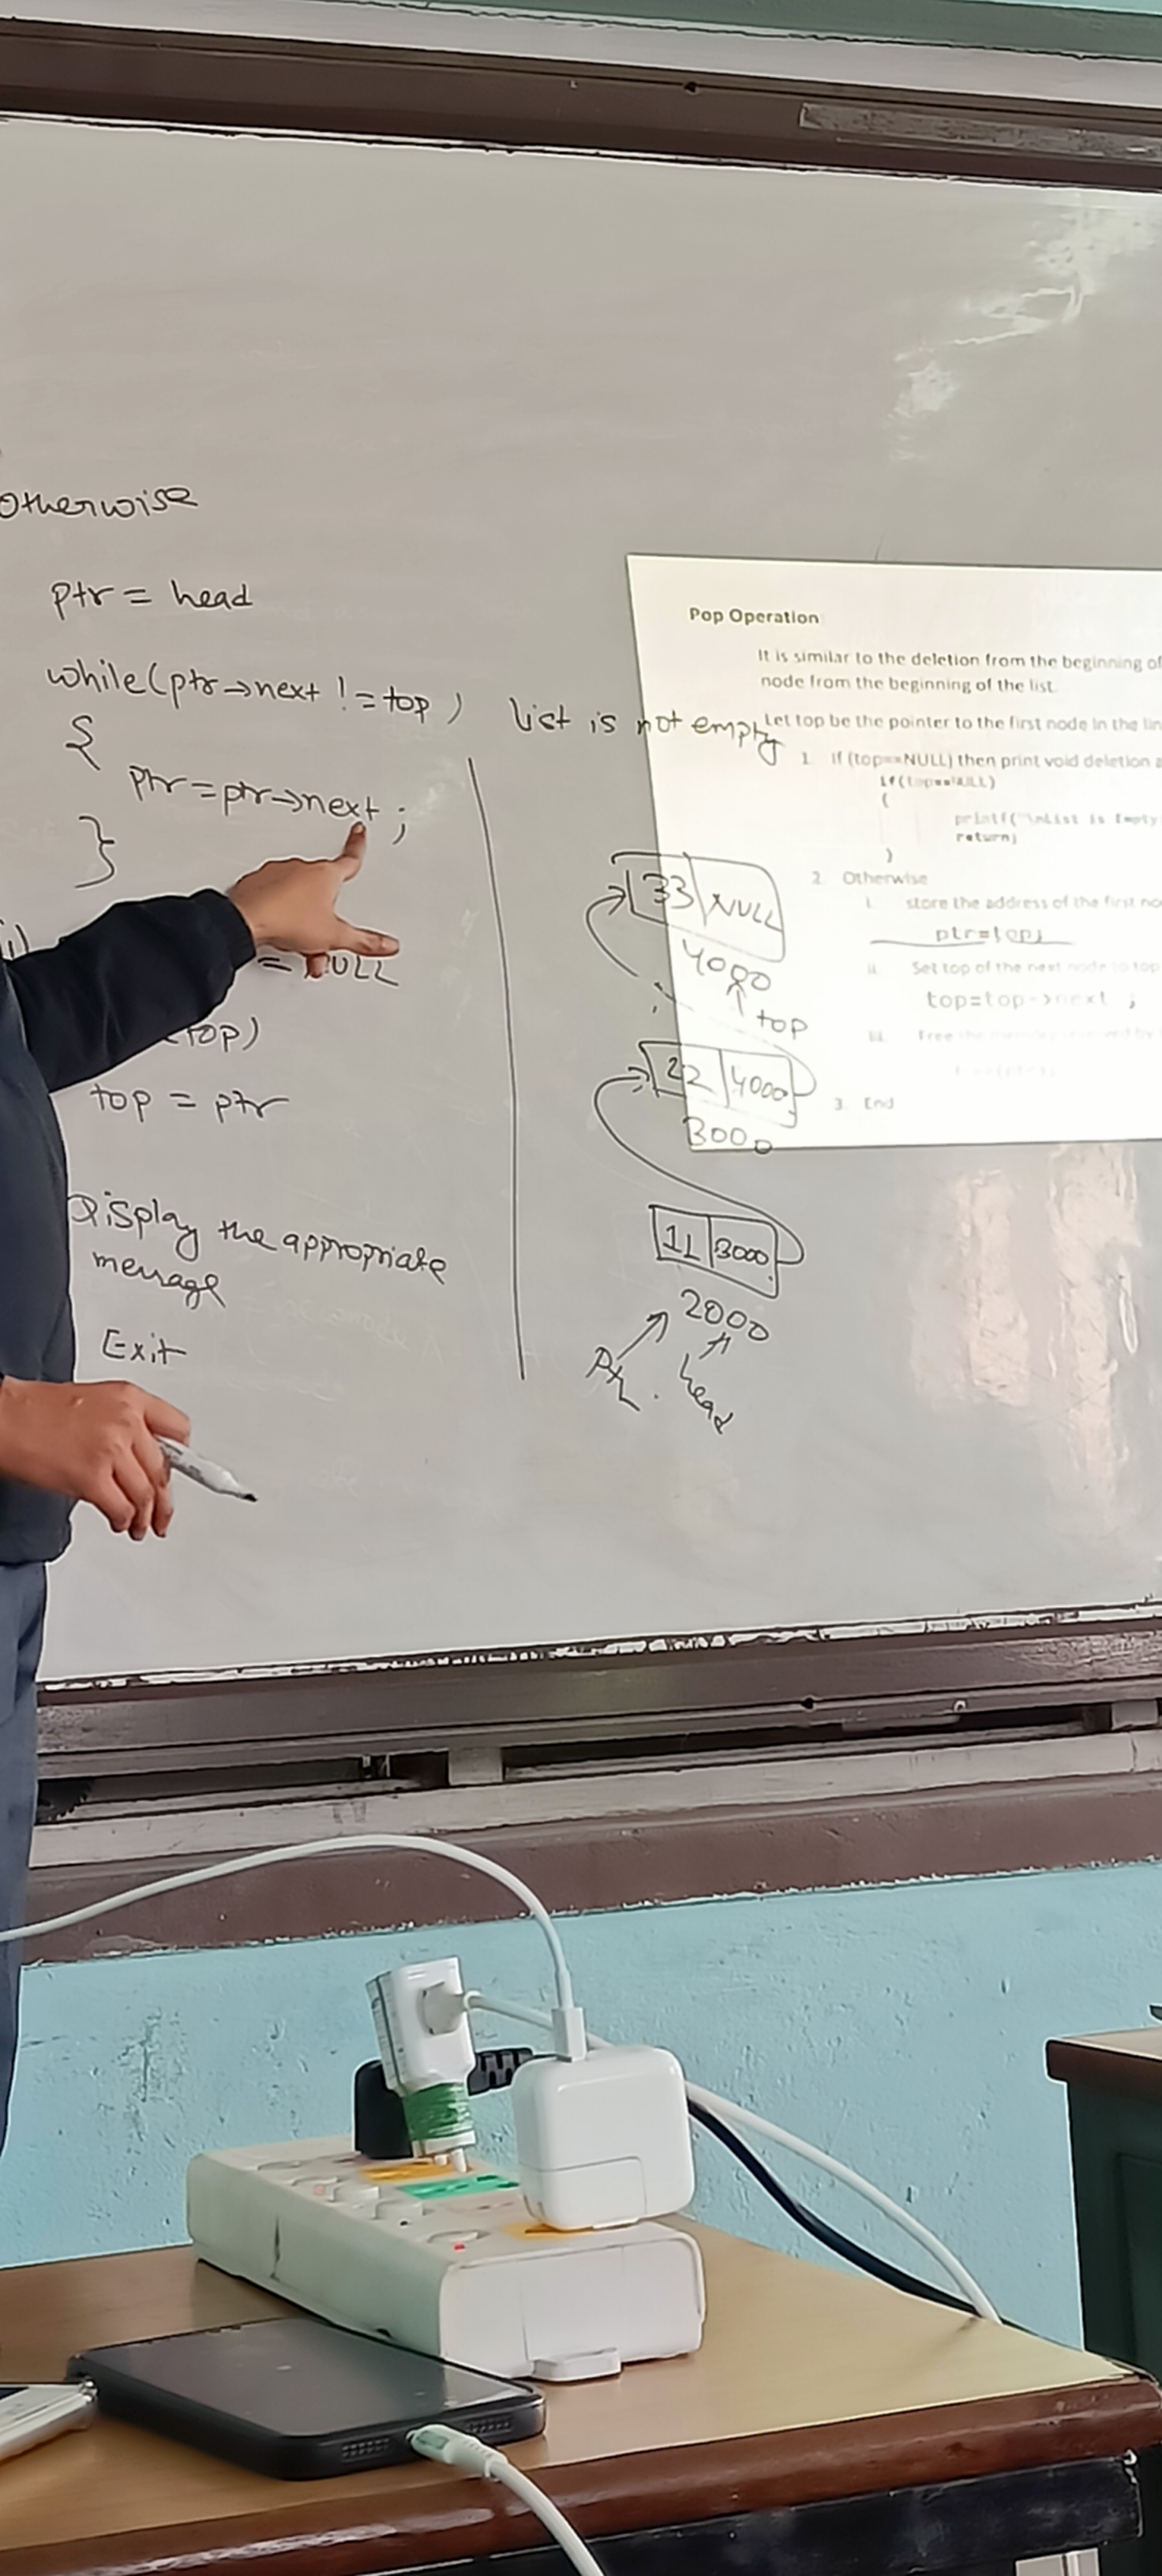 Otherwise
ptr = head
while(ptr→next != top)
{
ptr=ptr→next;
}
= NULL
top)
top = ptr
Display the appropriate
message
Exit
list is not empty
33 NULL
4000
top
22 4000
3000
11 3000
2000
Ptr
head
Pop Operation
It is similar to the deletion from the beginning of
node from the beginning of the list.
Let top be the pointer to the first node in the lin
1. If (top==NULL) then print void deletion a
if(top==NULL)
{
printf("\nList is Empty
return;
}
2. Otherwise
i. store the address of the first no
ptr=top;
ii. Set top of the next node to top
top=top->next ;
iii. Free the memory reserved by
3. End